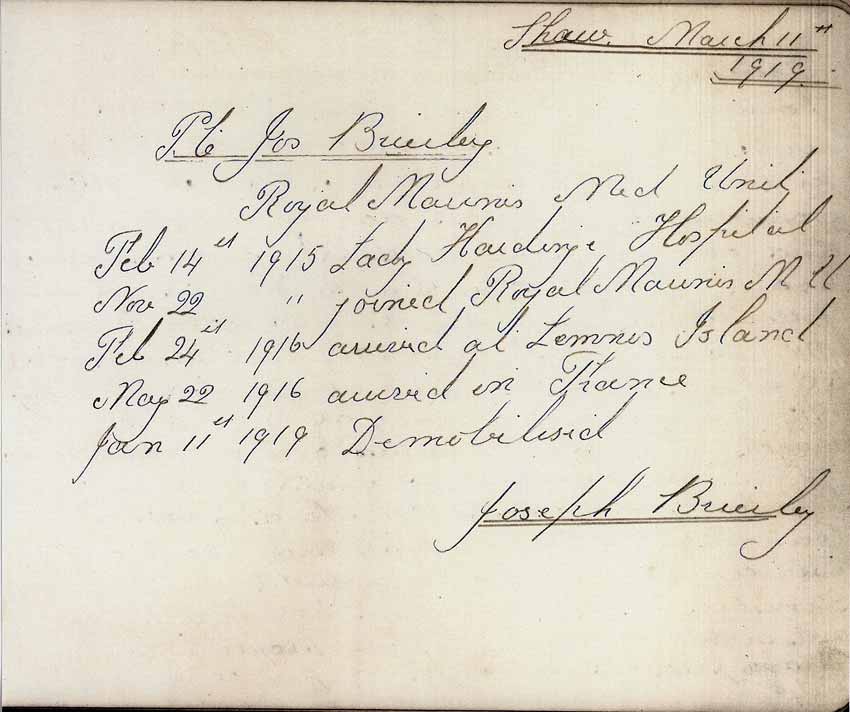 Shaw. March 11th
1919.
Pte Jos Brierley
Royal Marines Med Unit
Feb 14st 1915 Lady Hardinge Hospital
Nov 22 " joined Royal Marines M U
Feb 24st 1916 arrived at Lemnos Island
May 22 1916 arrived in France
Jan 11st 1919 Demobilised
Joseph Brierley